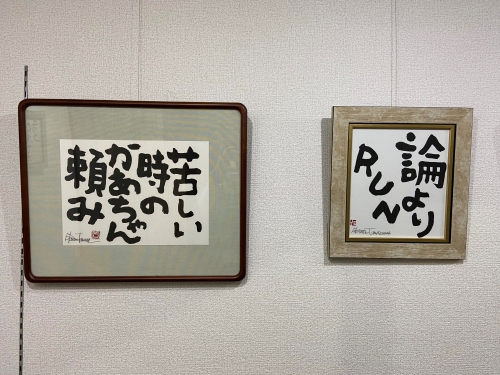 苦しい
時の
かあちゃん
頼み
論より
RUN